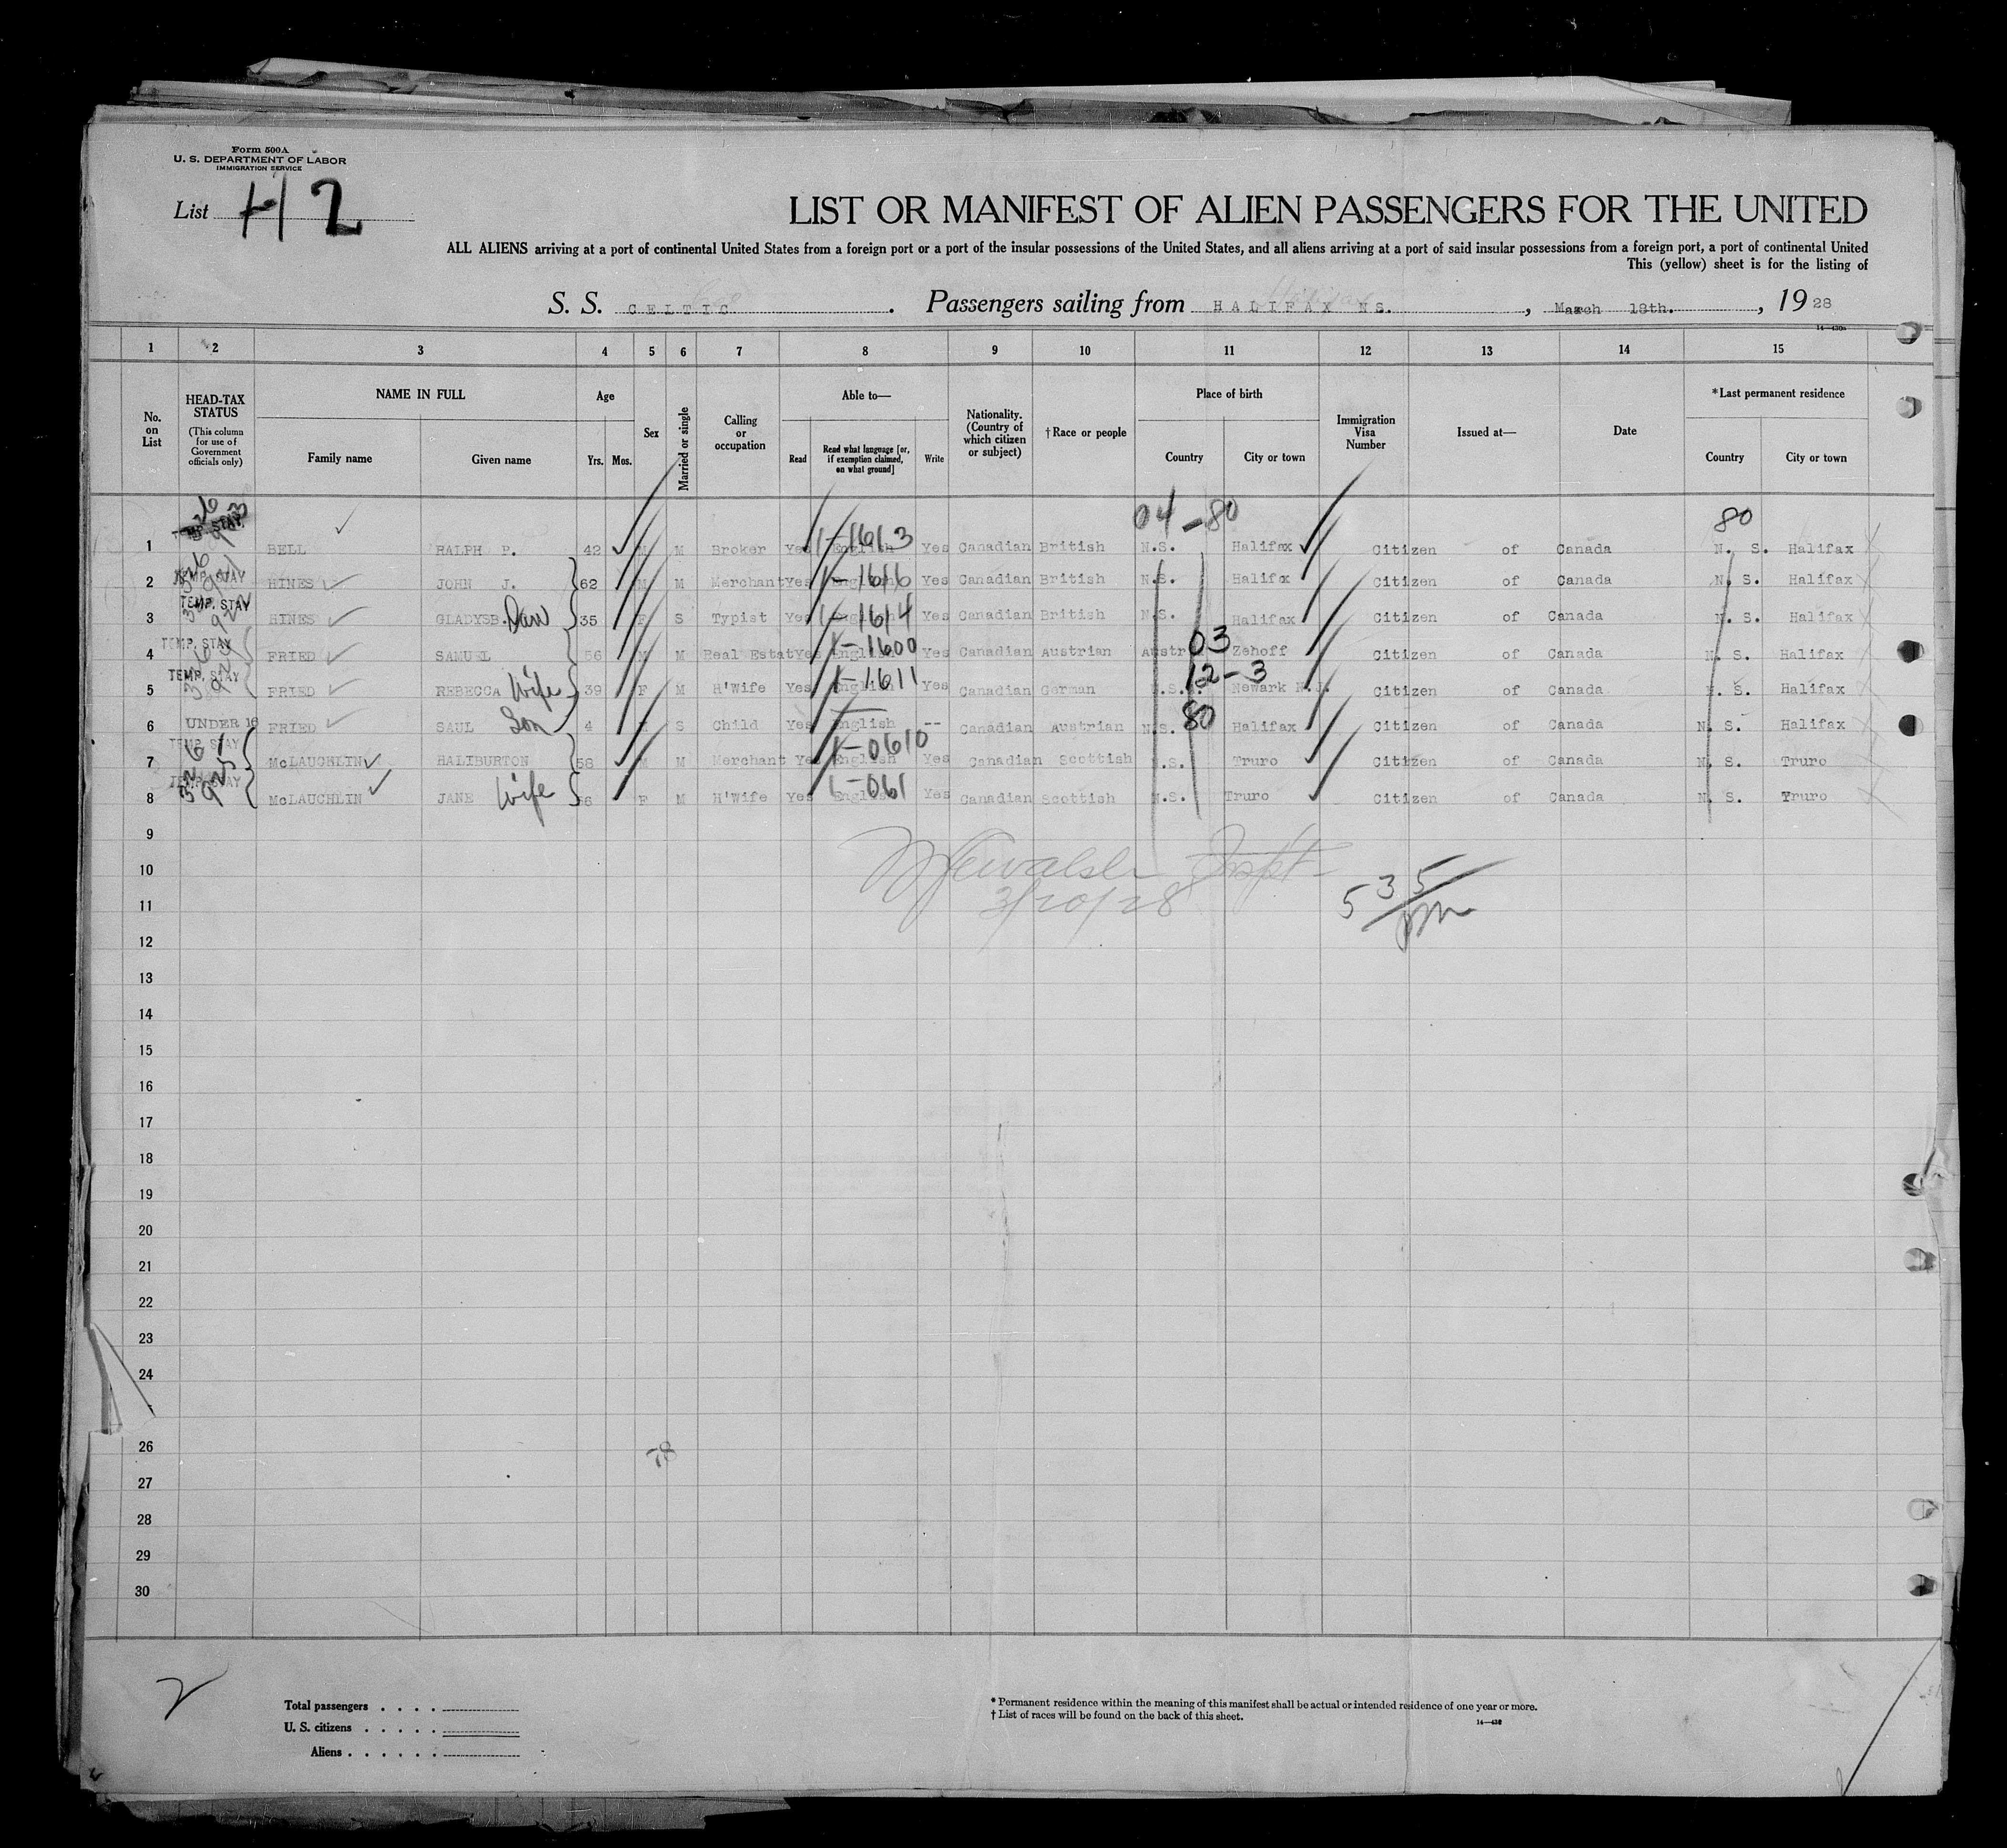 Form 500A
U. S. DEPARTMENT OF LABOR
IMMIGRATION SERVICE
List H 2
LIST OR MANIFEST OF ALIEN PASSENGERS FOR THE UNITED
ALL ALIENS arriving at a port of continental United States from a foreign port or a port of the insular possessions of the United States, and all aliens arriving at a port of said insular possessions from a foreign port, a port of continental United
This (yellow) sheet is for the listing of
S. S. CELTIC. Passengers sailing from HALIFAX NS., March 18th., 1928
1 2 3 4 5 6 7 8 9 10 11 12 13 14 15
No. on List
HEAD-TAX STATUS (This column for use of Government officials only)
NAME IN FULL Family name Given name
Age Yrs. Mos.
Sex
Married or single
Calling or occupation
Able to— Read Read what language [or, if exemption claimed, on what ground] Write
Nationality. (Country of which citizen or subject)
†Race or people
Place of birth Country City or town
Immigration Visa Number
Issued at—
Date
*Last permanent residence Country City or town
04-80 80
1 TEMP. STAY BELL RALPH P. 42 M M Broker Yes English 1-1613 Yes Canadian British N.S. Halifax Citizen of Canada N. S. Halifax
2 TEMP. STAY HINES JOHN J. 62 M M Merchant Yes English 1-1616 Yes Canadian British N.S. Halifax Citizen of Canada N. S. Halifax
3 TEMP. STAY HINES GLADYSB. Dau 35 F S Typist Yes English 1-1614 Yes Canadian British N.S. Halifax Citizen of Canada N. S. Halifax
4 TEMP. STAY FRIED SAMUEL 56 M M Real Estat Yes English 1-1600 Yes Canadian Austrian Austr 03 Zehoff Citizen of Canada N. S. Halifax
5 TEMP. STAY FRIED REBECCA Wife 39 F M H'Wife Yes English 1-1611 Yes Canadian German 12-3 Newark N.J. Citizen of Canada N. S. Halifax
6 UNDER 16 FRIED SAUL Son 4 S Child Yes English -- Canadian Austrian N.S. 80 Halifax Citizen of Canada N. S. Halifax
7 TEMP. STAY McLAUGHLIN HALIBURTON 58 M M Merchant Yes English 1-0610 Yes Canadian Scottish N.S. Truro Citizen of Canada N. S. Truro
8 TEMP. STAY McLAUCHLIN JANE Wife 6 F M H'Wife Yes English 1-061 Yes Canadian Scottish N.S. Truro Citizen of Canada N. S. Truro
9
10
Inspt
11 3/20/28 5 35/pm
12
13
14
15
16
17
18
19
20
21
22
23
24
26 78
27
28
29
30
2
Total passengers . . . .
U. S. citizens . . . . .
Aliens . . . . . .
* Permanent residence within the meaning of this manifest shall be actual or intended residence of one year or more.
† List of races will be found on the back of this sheet.